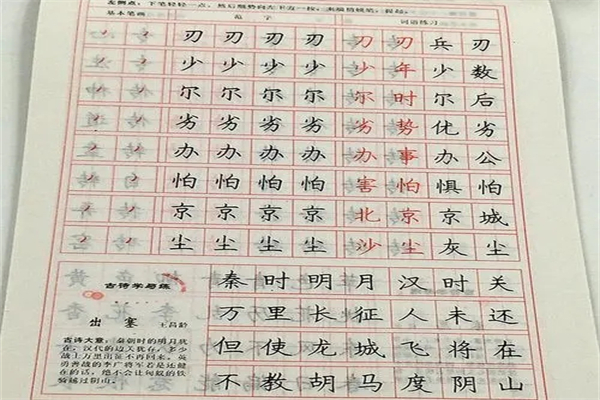 左侧点：下笔轻轻一点，然后顺势向左下方一按，末端稍缓笔，提起。
基本笔画 范字 词语练习
刃刃刃刃刃刃兵刃
少少少少少年少数
尔尔尔尔尔时尔后
劣劣劣劣劣势优劣
办办办办办事办公
怕怕怕怕害怕惧怕
京京京京北京京城
尘尘尘尘沙尘灰尘
古诗学与练
出塞 王昌龄
古诗大意：秦朝时的明月犹
在，汉代的边关犹在，多少
战士万里出征不再回来。英
勇善战的李广将军若是还健
在的话，绝不会让匈奴的铁
骑越过阴山。
秦时明月汉时关
万里长征人未还
但使龙城飞将在
不教胡马度阴山